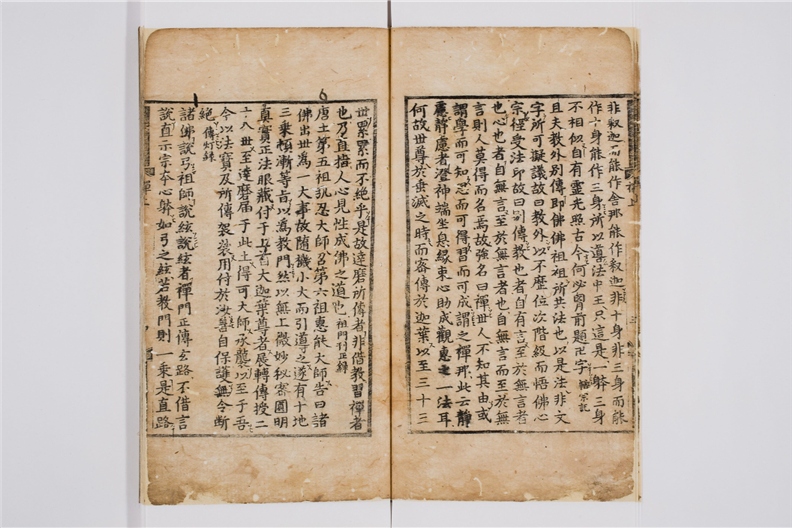 非釈迦而能作舍那能作釈迦非十身非三身而能
作十身能作三身所以尊法中王只這是一躰三身
不相似自有霊光照古今何少胷前題卍字
且夫教外別傳即佛佛祖祖所共法也以是法非文
字所可擬議故曰教外以不歷位次階級而悟佛心
宗徑受法印故曰別傳教也者自有言至於無言者
也心也者自無言至於無言者也自無言而至於無
言則人莫得而名焉故強名曰禪世人不知其由或
謂學而可知思而可得習而可成謂之禪那此云靜
慮靜慮者澄神端坐息緣束心助成觀惠之一法耳
何故世尊於垂滅之時而密傳於迦葉以至三十三
世累累而不絕乎是故達磨所傳者非借教習禪者
也乃直指人心見性成佛之道也 祖門刊正錄
唐土第五祖弘忍大師召第六祖惠能大師告曰諸
佛出世爲一大事故隨機小大而引導之遂有十地
三乘頓漸等旨以爲教門然以無上微妙秘密圓明
真實正法眼藏付于上首大迦葉尊者展轉傳授二
十八世至達磨屆于此土得可大師承襲以至于吾
今以法寶及所傳袈裟用付於汝善自保護無令斷
絕 傳灯録
諸佛說弓祖師說絃說絃者禪門正傳玄路不借言
說直示宗本心躰如弓之絃若教門則一乘是直路